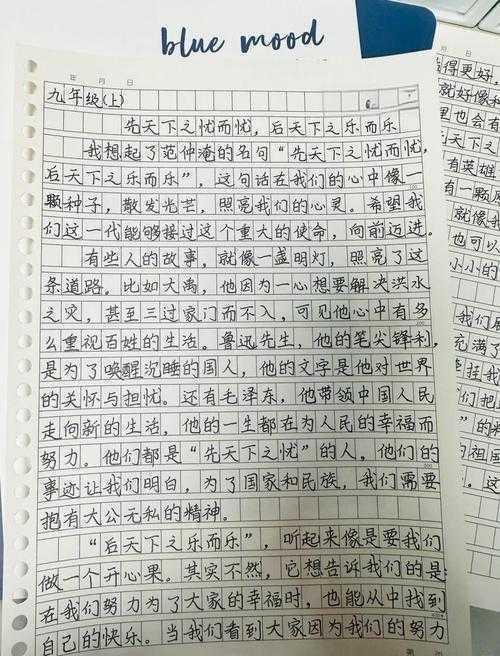 blue mood
年 月 日
九年级(上)
先天下之忧而忧，后天下之乐而乐
我想起了范仲淹的名句“先天下之忧而忧，
后天下之乐而乐”，这句话在我们的心中像一
颗种子，散发光芒，照亮我们的心灵。希望我
们这一代能够接过这个重大的使命，向前迈进。
有些人的故事，就像一盏明灯，照亮了这
条道路。比如大禹，他因为一心想要解决洪水
之灾，甚至三过家门而不入，可见他心中有多
么重视百姓的生活。鲁迅先生，他的笔尖锋利，
是为了唤醒沉睡的国人，他的文字是他对世界
的关怀与担忧。还有毛泽东，他带领中国人民
走向新的生活，他的一生都在为人民的幸福而
努力。他们都是“先天下之忧”的人。他们的
事迹让我们明白，为了国家和民族，我们需要
抱有大公无私的精神。
“后天下之乐而乐”，听起来像是要我们
做一个开心果。其实不然，它想告诉我们的是
在我们努力为了大家的幸福时，也能从中找到
自己的快乐。当我们看到大家因为我们的努力
得更好，
就好像
里也会有
天下之
有英雄
有一颗
就像我
也可以
小小的
们
充满了
牵挂我
们把
的祖国
。这